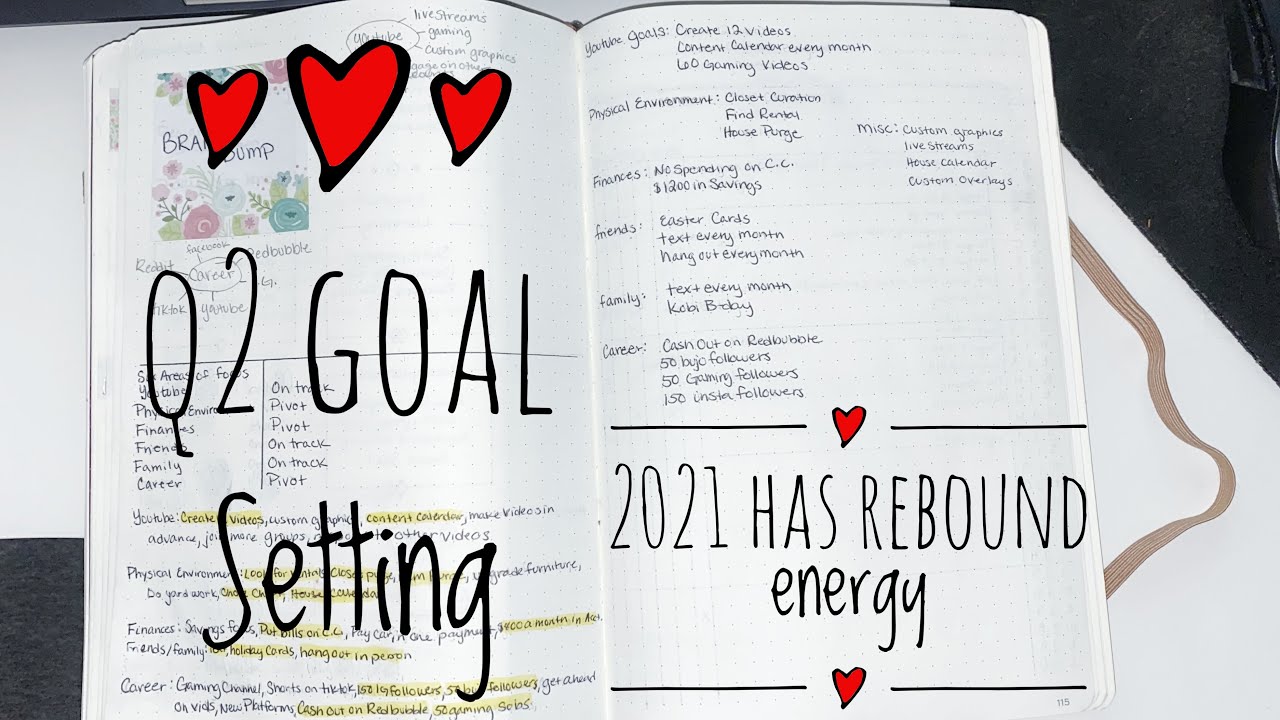 livestreams
Youtube
gaming
custom graphics
BRAIN DUMP
facebook
Redbubble
Reddit
Career
I.G.
tiktok
youtube
Q2 GOAL
Setting
Six Areas of Focus
Youtube On track
Physical Environ Pivot
Finances Pivot
Friends On track
Family On track
Career Pivot
Youtube: Create videos, custom graphics, content calendar, make videos in
advance, join more groups, other videos
Physical Environment: Look for rentals, Closet purge, upgrade furniture,
Do yard work, Chore Chart, House Calendar
Finances: Savings focus, Put bills on C.C., Pay car in one payment, $400 a month in Acct.
Friends/family: holiday cards, hang out in person
Career: Gaming Channel, Shorts on tiktok, 150 IG followers, 50 bujo followers, get ahead
on vids, New Platforms, Cash Out on Redbubble, 50 gaming subs.
Youtube Goals: Create 12 videos
Content Calendar every month
60 Gaming Videos
Physical Environment: Closet Curation
Find Rental
House Purge
Misc: Custom graphics
livestreams
House Calendar
Custom Overlays
Finances: No Spending on C.C.
$1200 in Savings
friends: Easter Cards
text every month
hang out every month
family: text every month
Kobi B-day
Career: Cash Out on Redbubble
50 bujo followers
50 Gaming followers
150 insta followers
2021 HAS REBOUND
energy
115